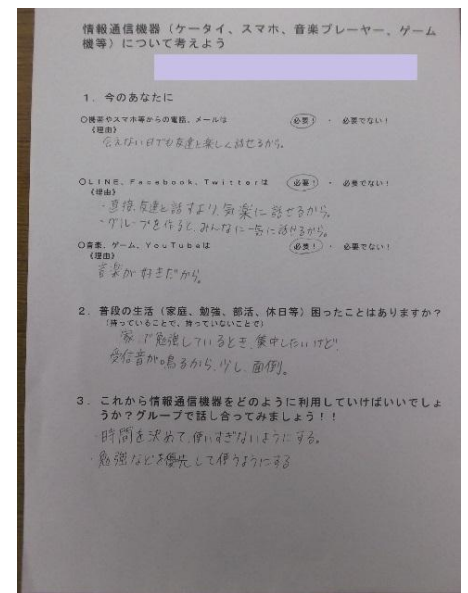 情報通信機器（ケータイ、スマホ、音楽プレーヤー、ゲーム
機等）について考えよう
1．今のあなたに
○携帯やスマホ等からの電話、メールは　必要！　・　必要でない！
《理由》
会えない日でも友達と楽しく話せるから。
○LINE、Facebook、Twitterは　必要！　・　必要でない！
《理由》
・直接友達と話すより、気楽に話せるから。
・グループを作ると、みんなに一斉に話せるから。
○音楽、ゲーム、YouTubeは　必要！　・　必要でない！
《理由》
音楽が好きだから。
2．普段の生活（家庭、勉強、部活、休日等）困ったことはありますか？
（持っていることで、持っていないことで）
家で勉強しているとき、集中したいけど
受信音が鳴るから、少し面倒。
3．これから情報通信機器をどのように利用していけばいいでしょ
うか？グループで話し合ってみましょう！！
・時間を決めて、使いすぎないようにする。
・勉強などを優先して使うようにする